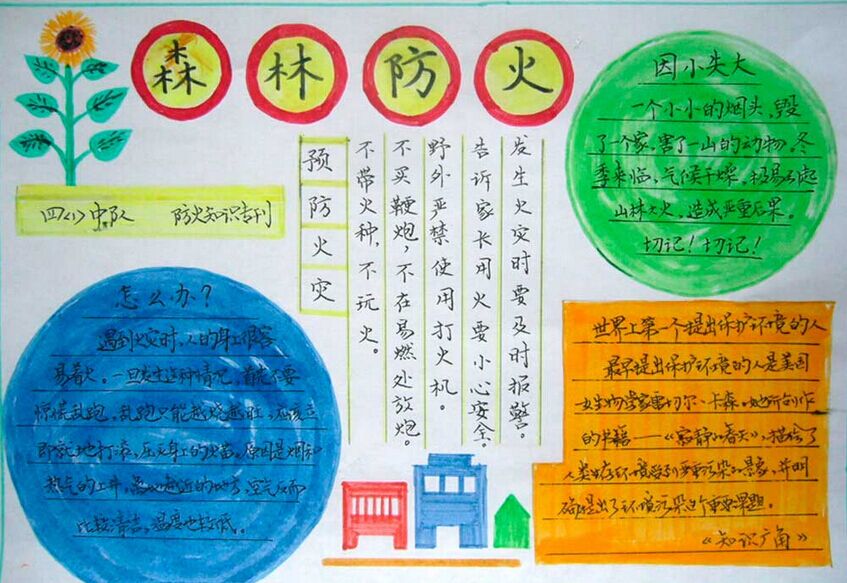 森林防火
四（1）中队 防火知识专刊
因小失大
一个小小的烟头，毁
了一个家，害了一山的动物。冬
季来临，气候干燥，极易引起
山林大火，造成严重后果。
切记！切记！
预防火灾
发生火灾时要及时报警。
告诉家长用火要小心安全。
野外严禁使用打火机。
不买鞭炮，不在易燃处放炮。
不带火种，不玩火。
怎么办？
遇到火灾时，人的身上很容
易着火。一旦发生这种情况，首先不要
惊慌乱跑，乱跑只能越烧越旺，应该立
即就地打滚，压灭身上的火苗。原因是烟和
热气的上升，离地近的地方，空气反而
比较清洁，温度也较低。
世界上第一个提出保护环境的人
最早提出保护环境的人是美国
女生物学家雷切尔·卡森。她所创作
的书籍——《寂静的春天》，描绘了
人类生存环境受到严重污染的景象，并明
确提出了环境污染这个重要课题。
《知识广角》